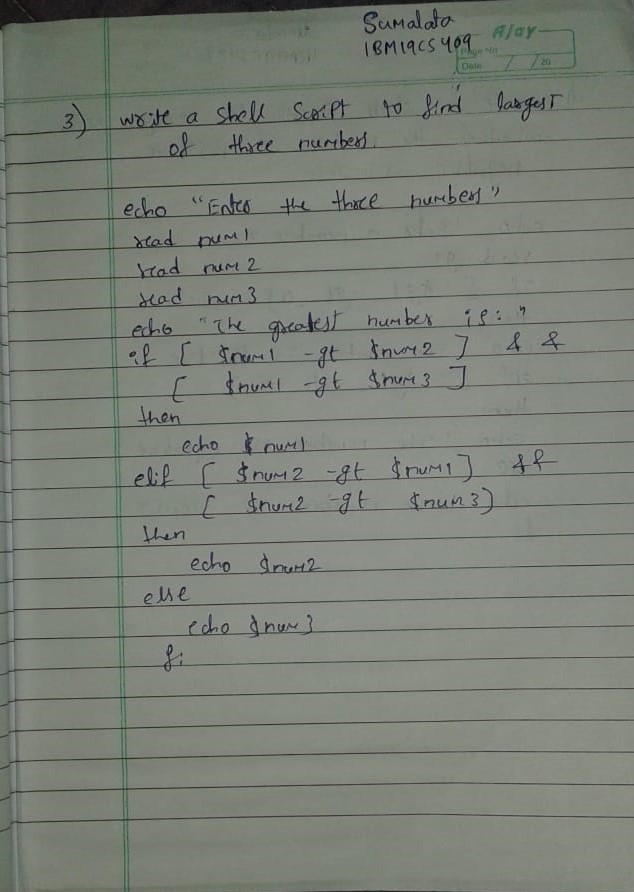 Sumalata
1BM19CS409
Ajay
Page No
Date / / 20
3) write a shell script to find largest
of three numbers.
echo "Enter the three numbers"
read num1
read num2
read num3
echo "The greatest number is: "
if [ $num1 -gt $num2 ] & &
[ $num1 -gt $num3 ]
then
echo $ num1
elif [ $num2 -gt $num1] &&
[ $num2 -gt $num3)
then
echo $num2
else
echo $num3
fi